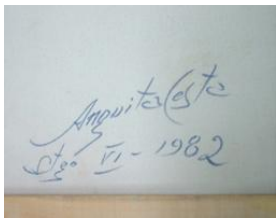 Anguita Cesta
Stgo VI - 1982